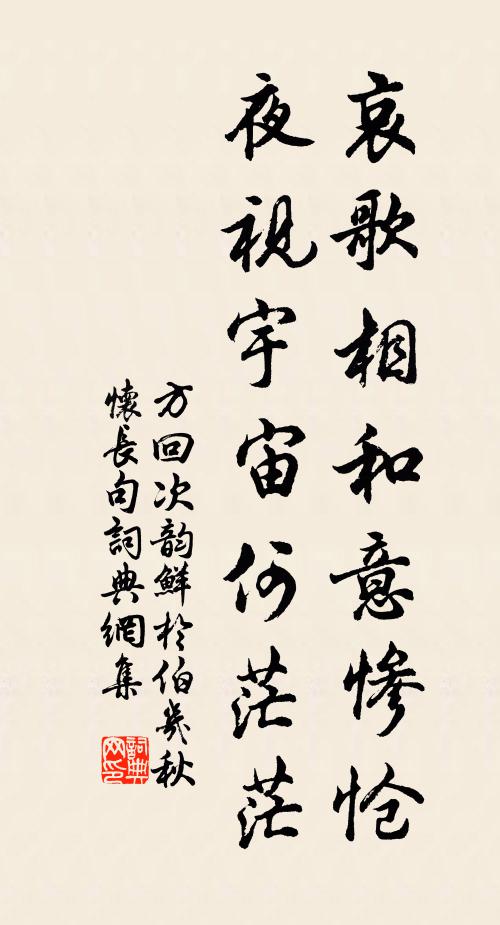 哀歌相和意惨怆
夜視宇宙何茫茫
方回次韵鮮於伯几秋
懷長句詞典網集
詞典
网印